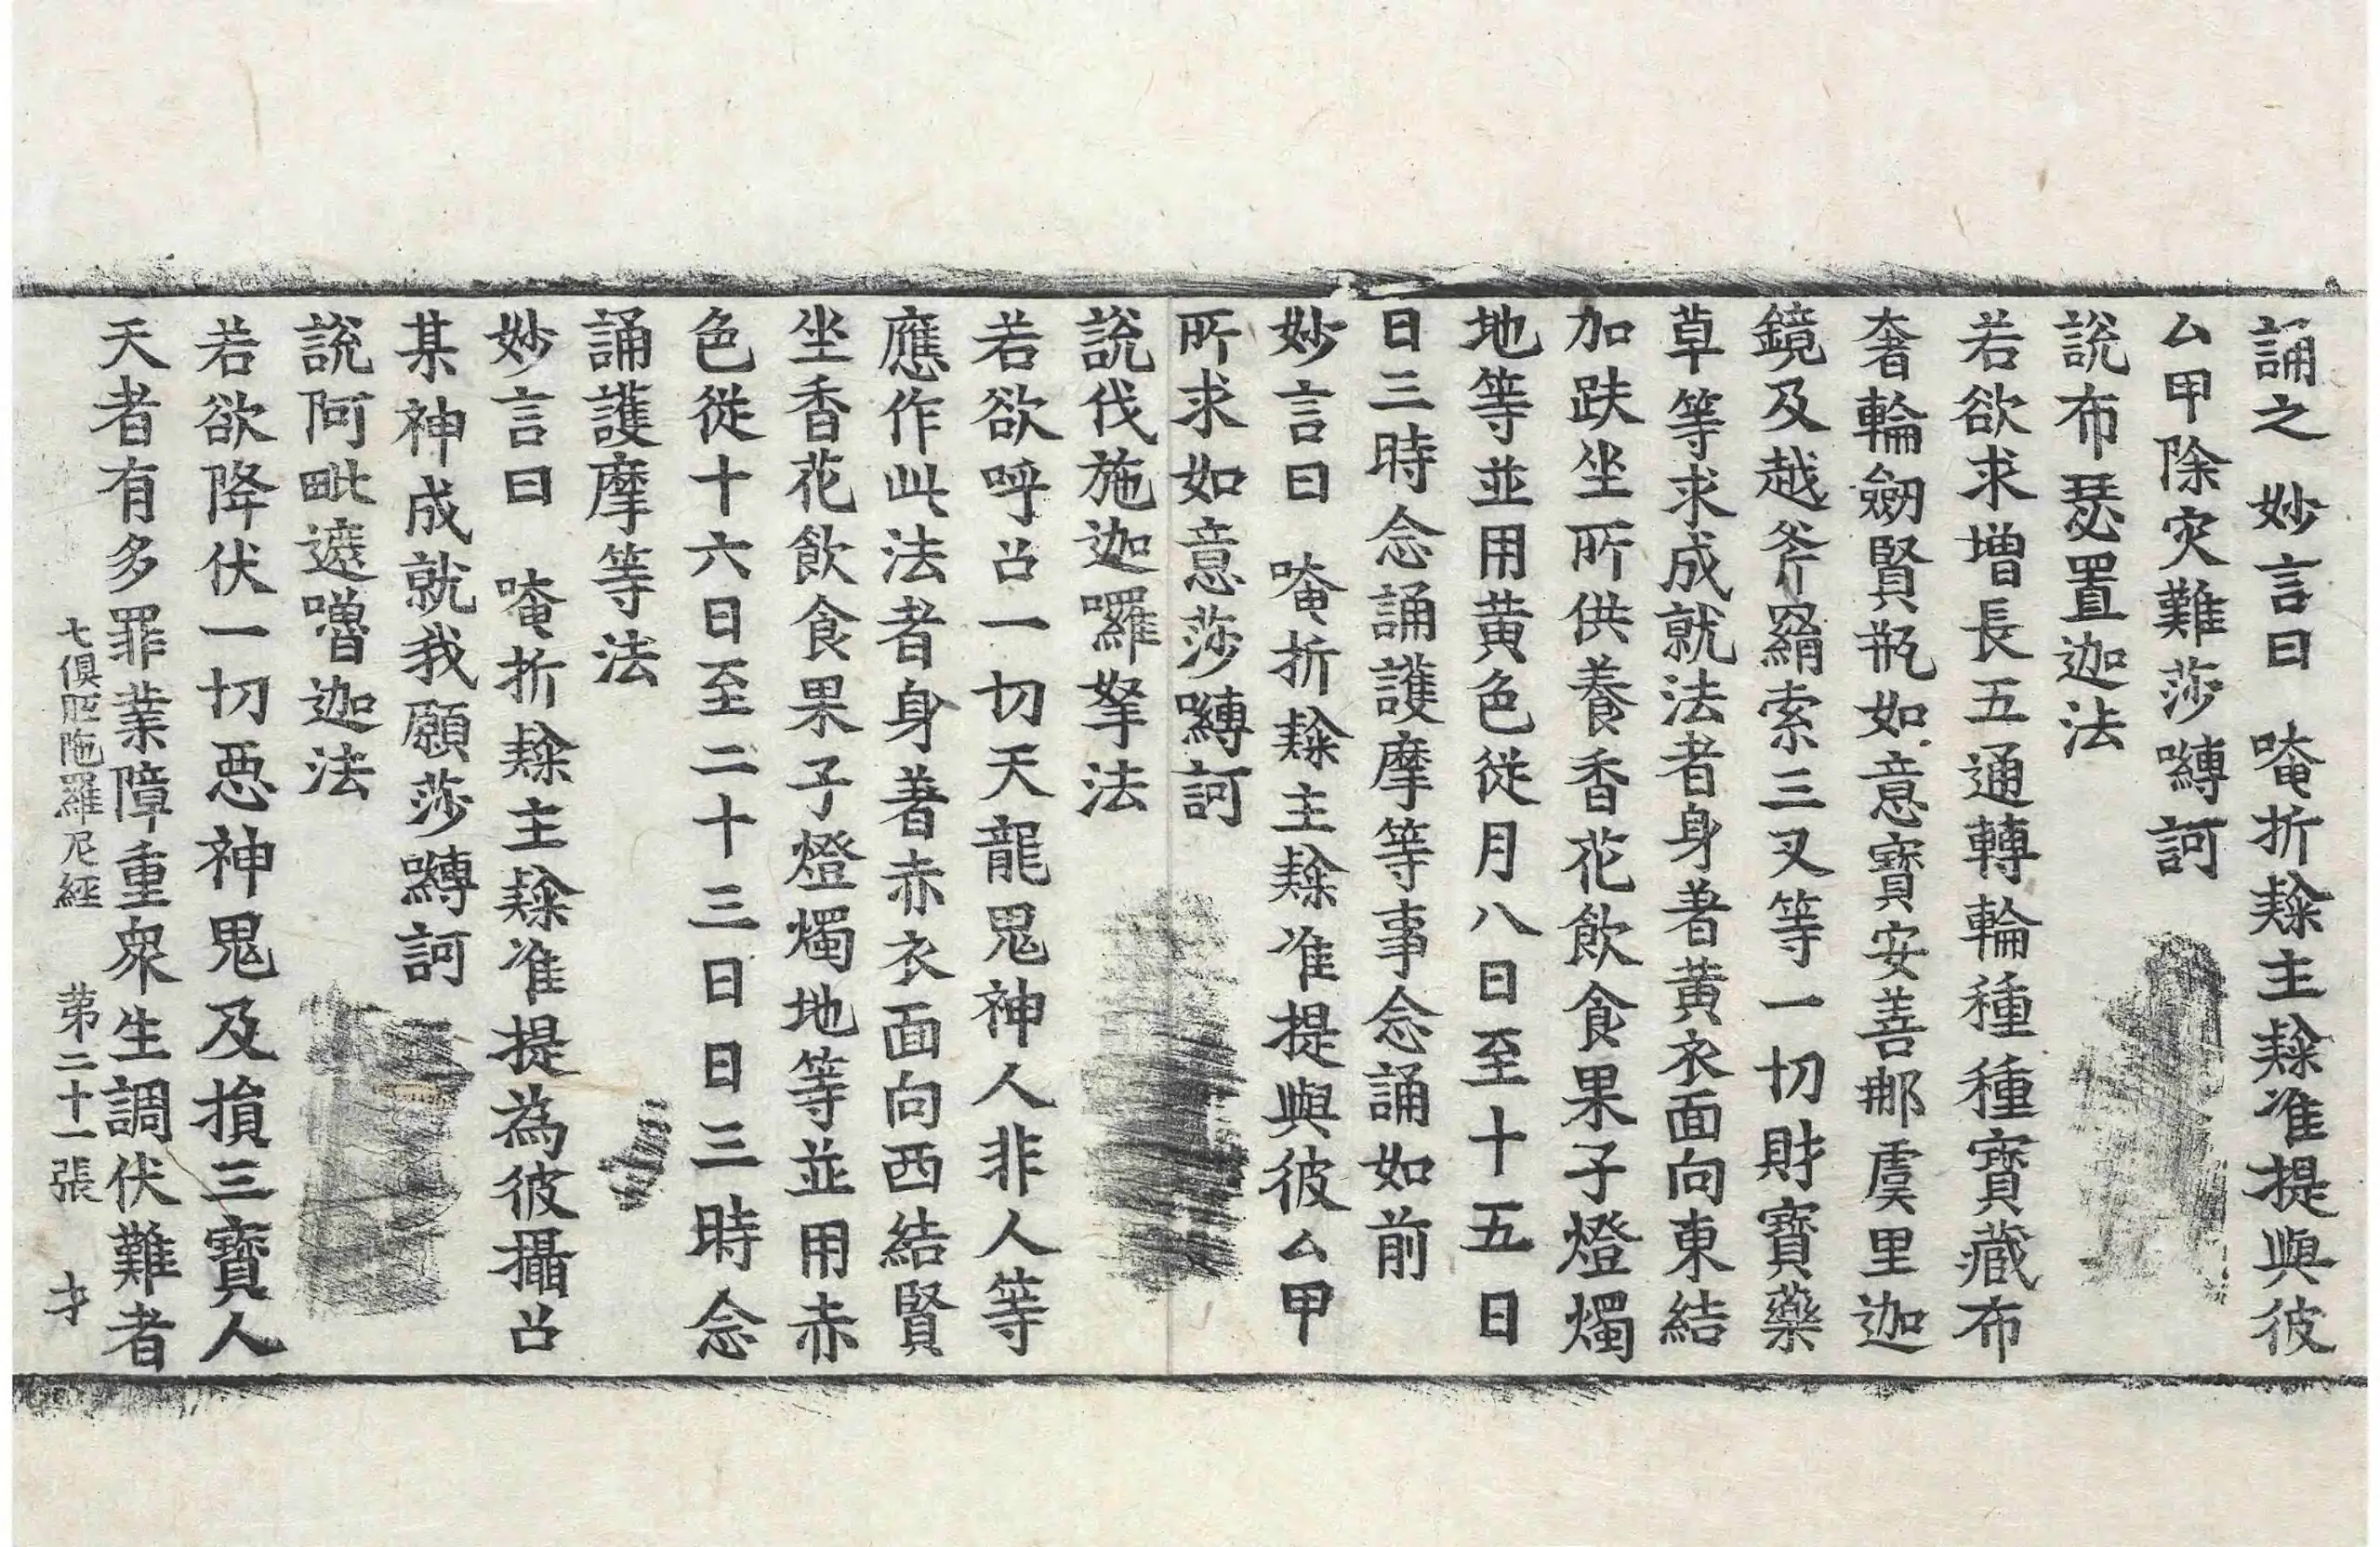 誦之 妙言曰 唵折𨽾主𨽾准提與彼
厶甲除灾難莎嚩訶
說布瑟置迦法
若欲求增長五通轉輪種種寶藏布
奢輪劒賢瓶如意寶安善那虞里迦
鏡及越斧羂索三叉等一切財寶藥
草等求成就法者身著黃衣面向東結
加趺坐所供養香花飲食果子燈燭
地等並用黃色從月八日至十五日
日三時念誦護摩等事念誦如前
妙言曰 唵折𨽾主𨽾准提與彼厶甲
所求如意莎嚩訶
說伐施迦囉拏法
若欲呼召一切天龍鬼神人非人等
應作此法者身著赤衣面向西結賢
坐香花飲食果子燈燭地等並用赤
色從十六日至二十三日日三時念
誦護摩等法
妙言曰 唵折𨽾主𨽾准提為彼攝召
某神成就我願莎嚩訶
說阿毗遮嚕迦法
若欲降伏一切惡神鬼及損三寶人
天者有多罪業障重衆生調伏難者
七俱胝陁羅尼經 苐二十一張 才